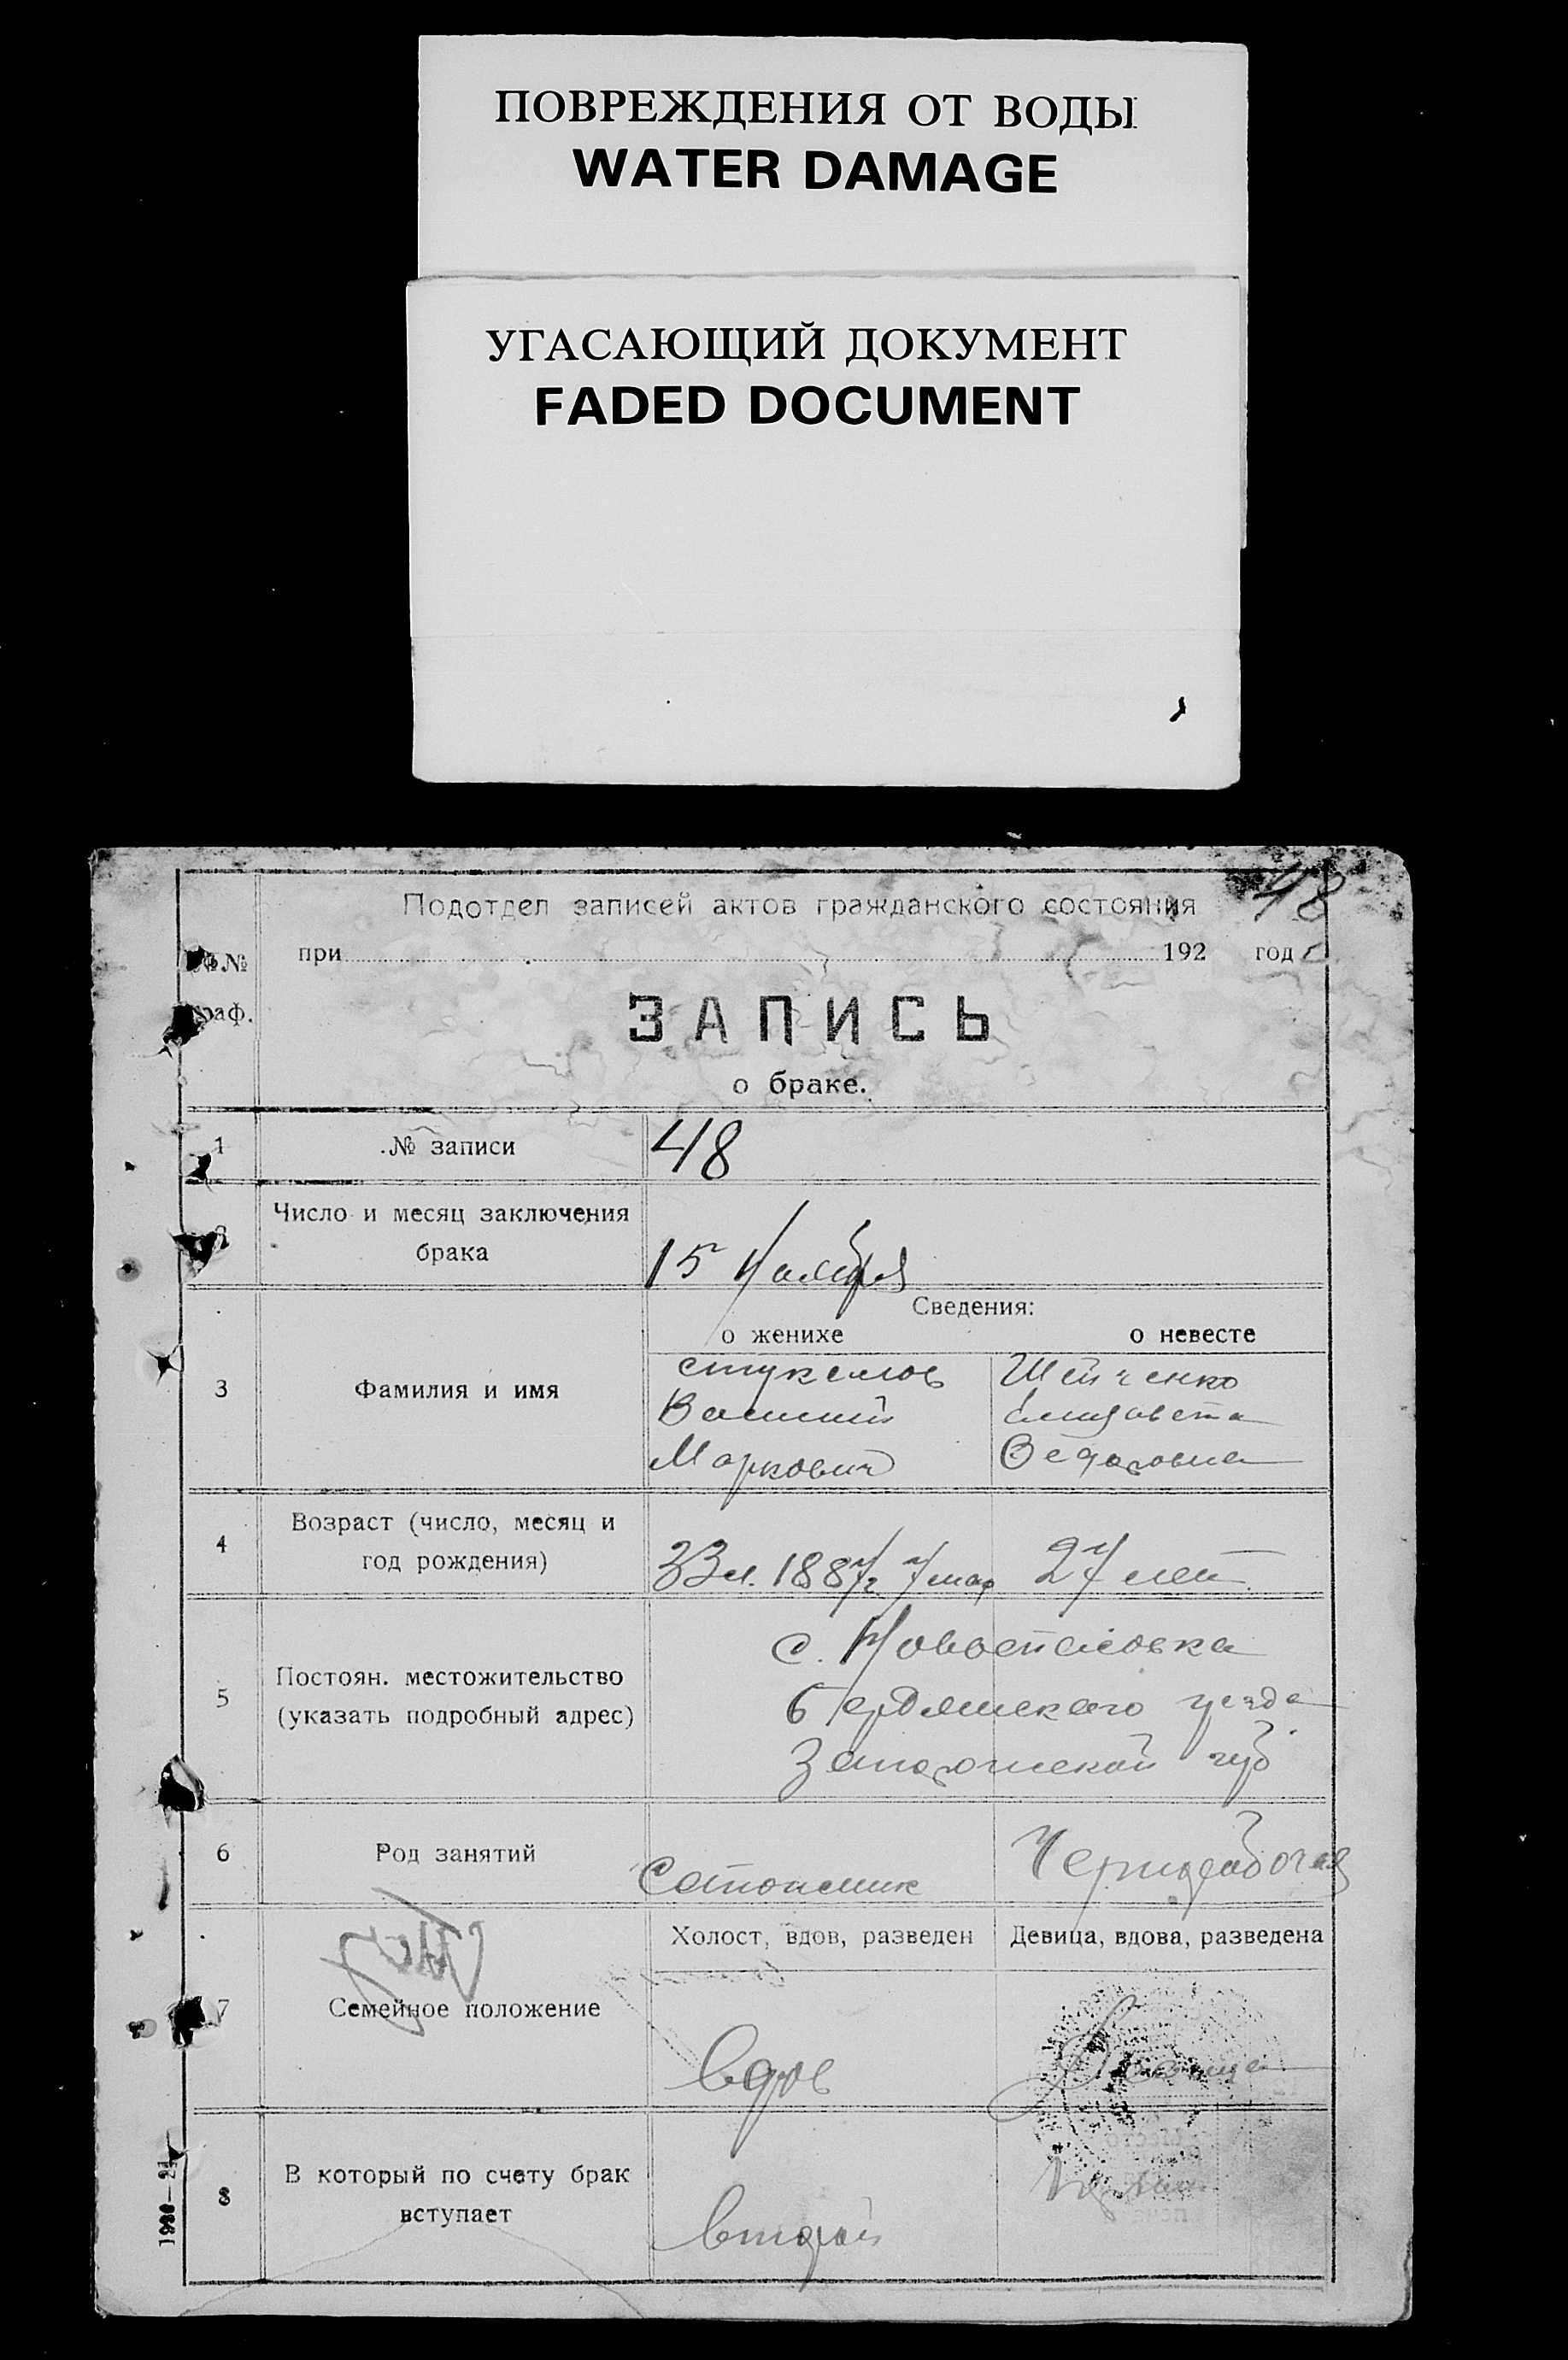 ПОВРЕЖДЕНИЯ ОТ ВОДЫ
WATER DAMAGE
УГАСАЮЩИЙ ДОКУМЕНТ
FADED DOCUMENT
48
Подотдел записей актов гражданского состояния
при 192 год
№№
граф.
ЗАПИСЬ
о браке.
1 № записи 48
2 Число и месяц заключения
брака
15 Ноября
Сведения:
о женихе о невесте
3 Фамилия и имя
Василий
Маркович
Елизавета
Федоровна
4 Возраст (число, месяц и
год рождения)
33 л. 1887 г. 7 мар 27 лет
5 Постоян. местожительство
(указать подробный адрес)
с. Новоспасовка
Бердянского уезда
Запорожской губ.
6 Род занятий
Сапожник Чернорабочая
7 Семейное положение
Холост, вдов, разведен Девица, вдова, разведена
вдов Девица
8 В который по счету брак
вступает
второй